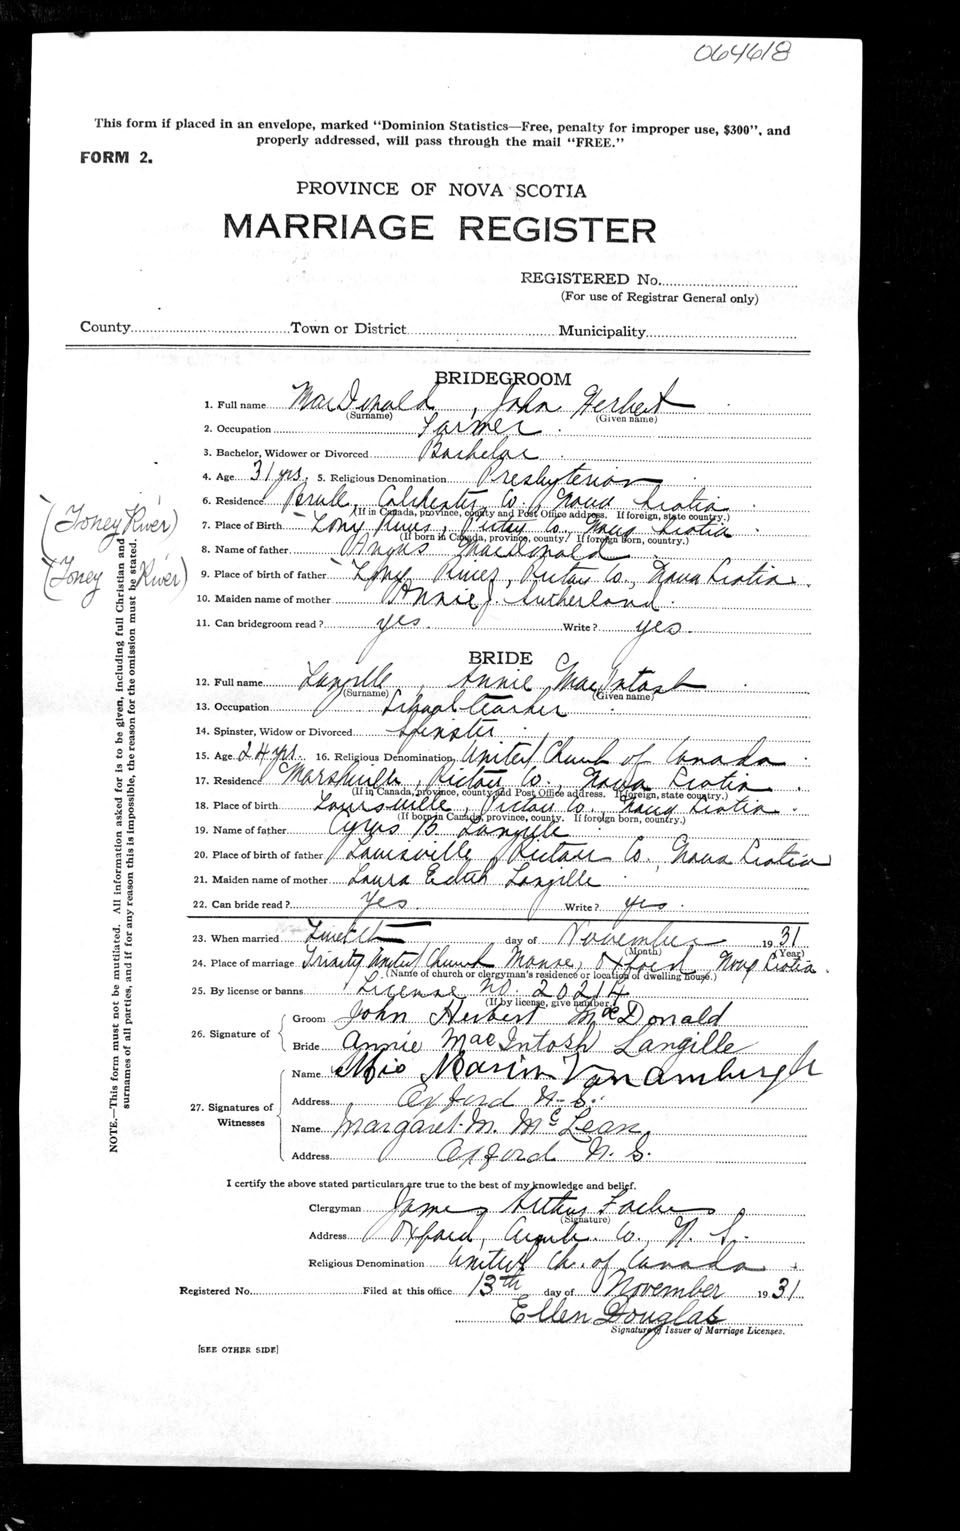 064618
This form if placed in an envelope, marked "Dominion Statistics—Free, penalty for improper use, $300", and
properly addressed, will pass through the mail "FREE."
FORM 2.
PROVINCE OF NOVA SCOTIA
MARRIAGE REGISTER
REGISTERED No.
(For use of Registrar General only)
County Town or District Municipality
BRIDEGROOM
1. Full name MacDonald, John Herbert
(Surname) (Given name)
2. Occupation Farmer
3. Bachelor, Widower or Divorced Bachelor
4. Age 31 yrs. 5. Religious Denomination Presbyterian
6. Residence Brule, Colchester Co., Nova Scotia
(If in Canada, province, county and Post Office address. If foreign, state country.)
7. Place of Birth Tony River, Pictou Co., Nova Scotia
(If born in Canada, province, county. If foreign born, country.)
(Toney River)
8. Name of father Angus MacDonald
9. Place of birth of father Tony River, Pictou Co., Nova Scotia
(Toney River)
10. Maiden name of mother Annie J. Sutherland
11. Can bridegroom read? yes Write? yes
BRIDE
12. Full name Langille, Annie MacIntosh
(Surname) (Given name)
13. Occupation School teacher
14. Spinster, Widow or Divorced Spinster
15. Age 24 yrs. 16. Religious Denomination United Church of Canada
17. Residence Marshville, Pictou Co., Nova Scotia
(If in Canada, province, county and Post Office address. If foreign, state country.)
18. Place of birth Louisville, Pictou Co. Nova Scotia
(If born in Canada, province, county. If foreign born, country.)
19. Name of father Cyrus B. Langille
20. Place of birth of father Louisville, Pictou Co., Nova Scotia
21. Maiden name of mother Laura Edith Langille
22. Can bride read? Yes Write? yes
23. When married Twelfth day of November 1931
(Month) (Year)
24. Place of marriage Trinity United Church Manse, Oxford Nova Scotia
(Name of church or clergyman's residence or location of dwelling house.)
25. By license or banns License No. 20214
(If by license, give number)
26. Signature of Groom John Herbert MacDonald
Bride Annie MacIntosh Langille
27. Signatures of Witnesses
Name Marion Vanamburgh
Address Oxford N.S.
Name Margaret M. McLean
Address Oxford N.S.
I certify the above stated particulars are true to the best of my knowledge and belief.
Clergyman James Arthur
(Signature)
Address Oxford, Co., N.S.
Religious Denomination United Ch. of Canada
Registered No. Filed at this office 13th day of November 1931
Ellen Douglas
Signature of Issuer of Marriage Licenses.
[SEE OTHER SIDE]
NOTE.—This form must not be mutilated. All information asked for is to be given, including full Christian and
surnames of all parties, and if for any reason this is impossible, the reason for the omission must be stated.